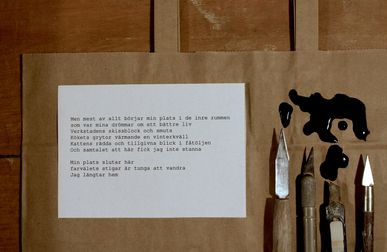 Men mest av allt börjar min plats i de inre rummen
som var mina drömmar om att bättre liv
Verkstadens skissblock och smuts
Kökets grytor värmande en vinterkväll
Kattens rädda och tillgivna blick i fåtöljen
Och samtalet att här fick jag inte stanna
Min plats slutar här
farvälets stigar är tunga att vandra
Jag längtar hem